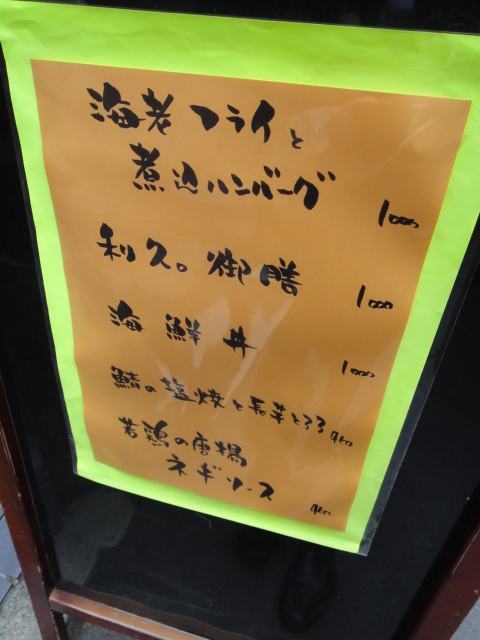 海老フライと
煮込ハンバーグ 1000
利久。御膳 1000
海鮮丼 1000
鯖の塩焼と長芋とろろ
若鶏の唐揚
ネギソース